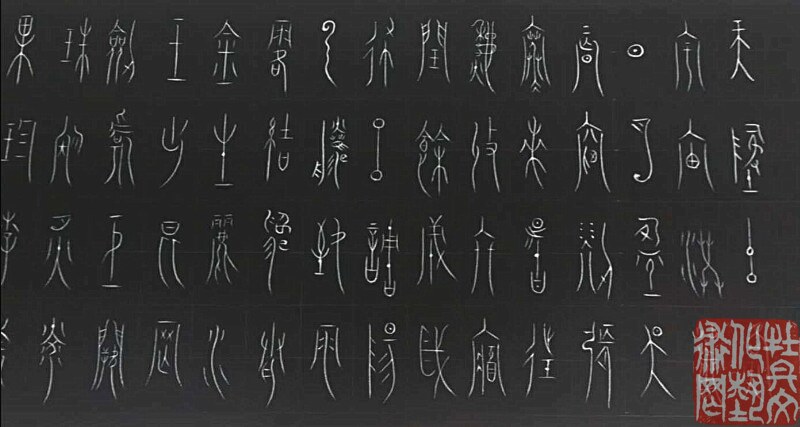 天地玄
宇宙洪
日月盈昃
辰宿列張
寒來暑往
秋收冬藏
閏餘成歲
律呂調陽
雲騰致雨
露結為霜
金生麗水
玉出崑岡
劍號巨闕
珠稱夜光
果珍李柰